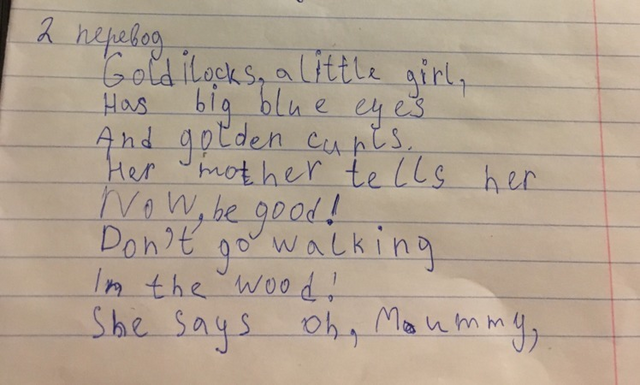 2 перевод
Goldilocks, a little girl,
Has big blue eyes
And golden curls.
Her mother tells her
Now, be good!
Don't go walking
In the wood!
She says oh, Mummy,